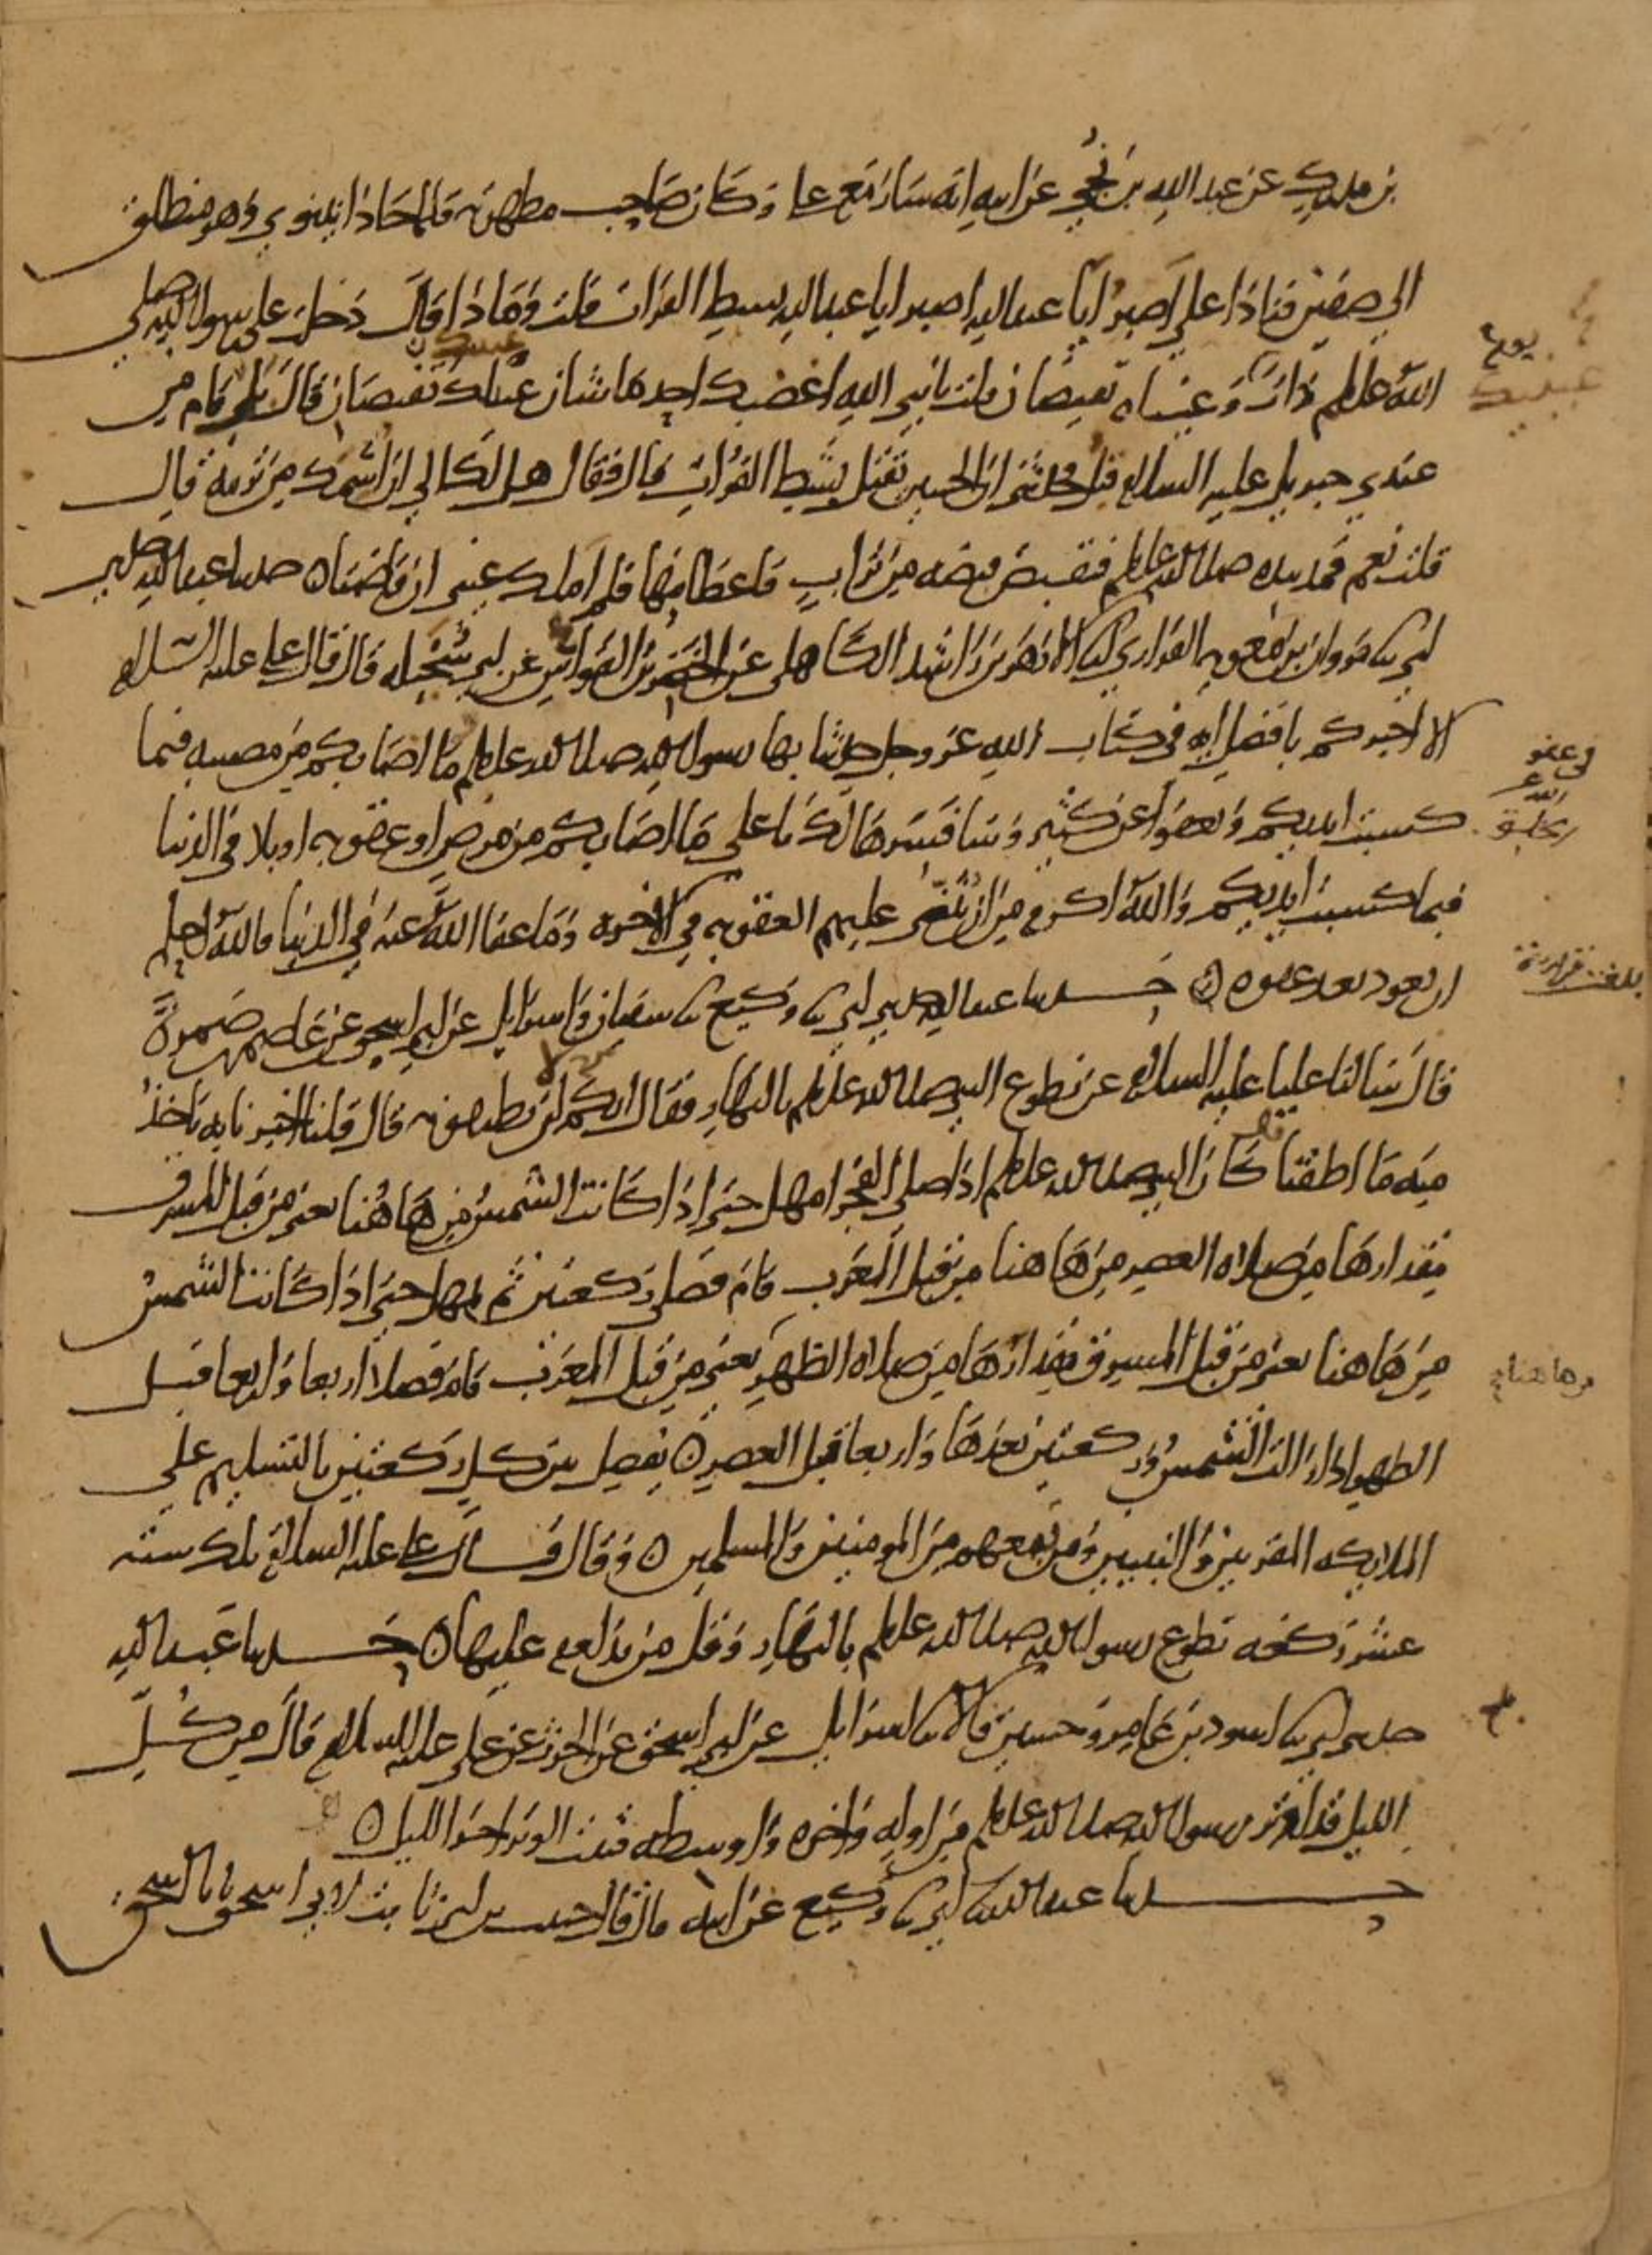 بن مدرك عن عبد الله بن نجي عن ابيه انه سار مع علي وكان صاحب مطهرته فلما حاذا نينوي وهو منطلق
الى صفين فنادا علي اصبر ابا عبد الله اصبر ابا عبد الله بشط الفرات قلت وماذا قال دخلت على رسول الله صلى
الله عليه وسلم ذات يوم وعيناه تفيضان قلت يا نبي الله اغضبك احد ما شان عينيك تفيضان قال بل قام من
عندي جبريل عليه السلام قبل فحدثني ان الحسين يقتل بشط الفرات قال فقال هل لك الى ان اشمك من تربته قال
قلت نعم فمد يده صلى الله عليه وسلم فقبض قبضه من تراب فاعطانيها فلم املك عيني ان فاضتا ۞ حدثنا عبد الله حدثني
ابي ثنا مروان بن معويه الفزاري انبا الازهر بن راشد الكاهلي عن الخضر بن القواس عن ابي سخيله قال قال علي عليه السلام
الا اخبركم بافضل ايه في كتاب الله عز وجل حدثنا بها رسول الله صلى الله عليه وسلم ما اصابكم من مصيبه فبما
كسبت ايديكم ويعفوا عن كثير وسافسرها لك يا علي ما اصابكم من مرض او عقوبه او بلا في الدنيا
فبما كسبت ايديكم والله اكرم من ان يثني عليهم العقوبه في الاخره وما عفا الله عنه في الدنيا فالله احلم
ان يعود بعد عفوه ۞ حدثنا عبد الله حدثني ابي ثنا وكيع ثنا سفيان واسرايل عن ابي اسحق عن عاصم بن ضمرة
قال سالنا عليا عليه السلام عن تطوع النبي صلى الله عليه وسلم بالنهار فقال انكم لن تطيقونه قال قلنا اخبرنا به ناخذ
منه ما اطقنا كان النبي صلى الله عليه وسلم اذا صلى الفجر امهل حتى اذا كانت الشمس من هاهنا يعني من قبل المشرق
مقدارها من صلاه العصر من هاهنا من قبل المغرب قام فصلى ركعتين ثم يمهل حتى اذا كانت الشمس
من هاهنا يعني من قبل المشرق مقدارها من صلاه الظهر يعني من قبل المغرب قام فصلا اربعا واربعا قبل
الظهر اذا زالت الشمس وركعتين بعدها واربعا قبل العصر ۞ يفصل بين كل ركعتين بالتسليم على
الملايكه المقربين والنبيين ومن تبعهم من المومنين والمسلمين ۞ وقال قال علي عليه السلام تلك ستة
عشر ركعه تطوع رسول الله صلى الله عليه وسلم بالنهار وقل من يداوم عليها ۞ حدثنا عبد الله
حدثني ابي ثنا اسود بن عامر وحسين قالا ثنا اسرايل عن ابي اسحق عن الحرث عن علي عليه السلام قال من كل
الليل قد اوتر رسول الله صلى الله عليه وسلم من اوله واخره واوسطه فثبت الوتر اخر الليل ۞
حدثنا عبد الله ثنا ابي ثنا وكيع عن ابيه قال قال حبيب بن ابي ثابت لابي اسحق يا با اسحق
يوم
عينيك
في عفو
هاهنا